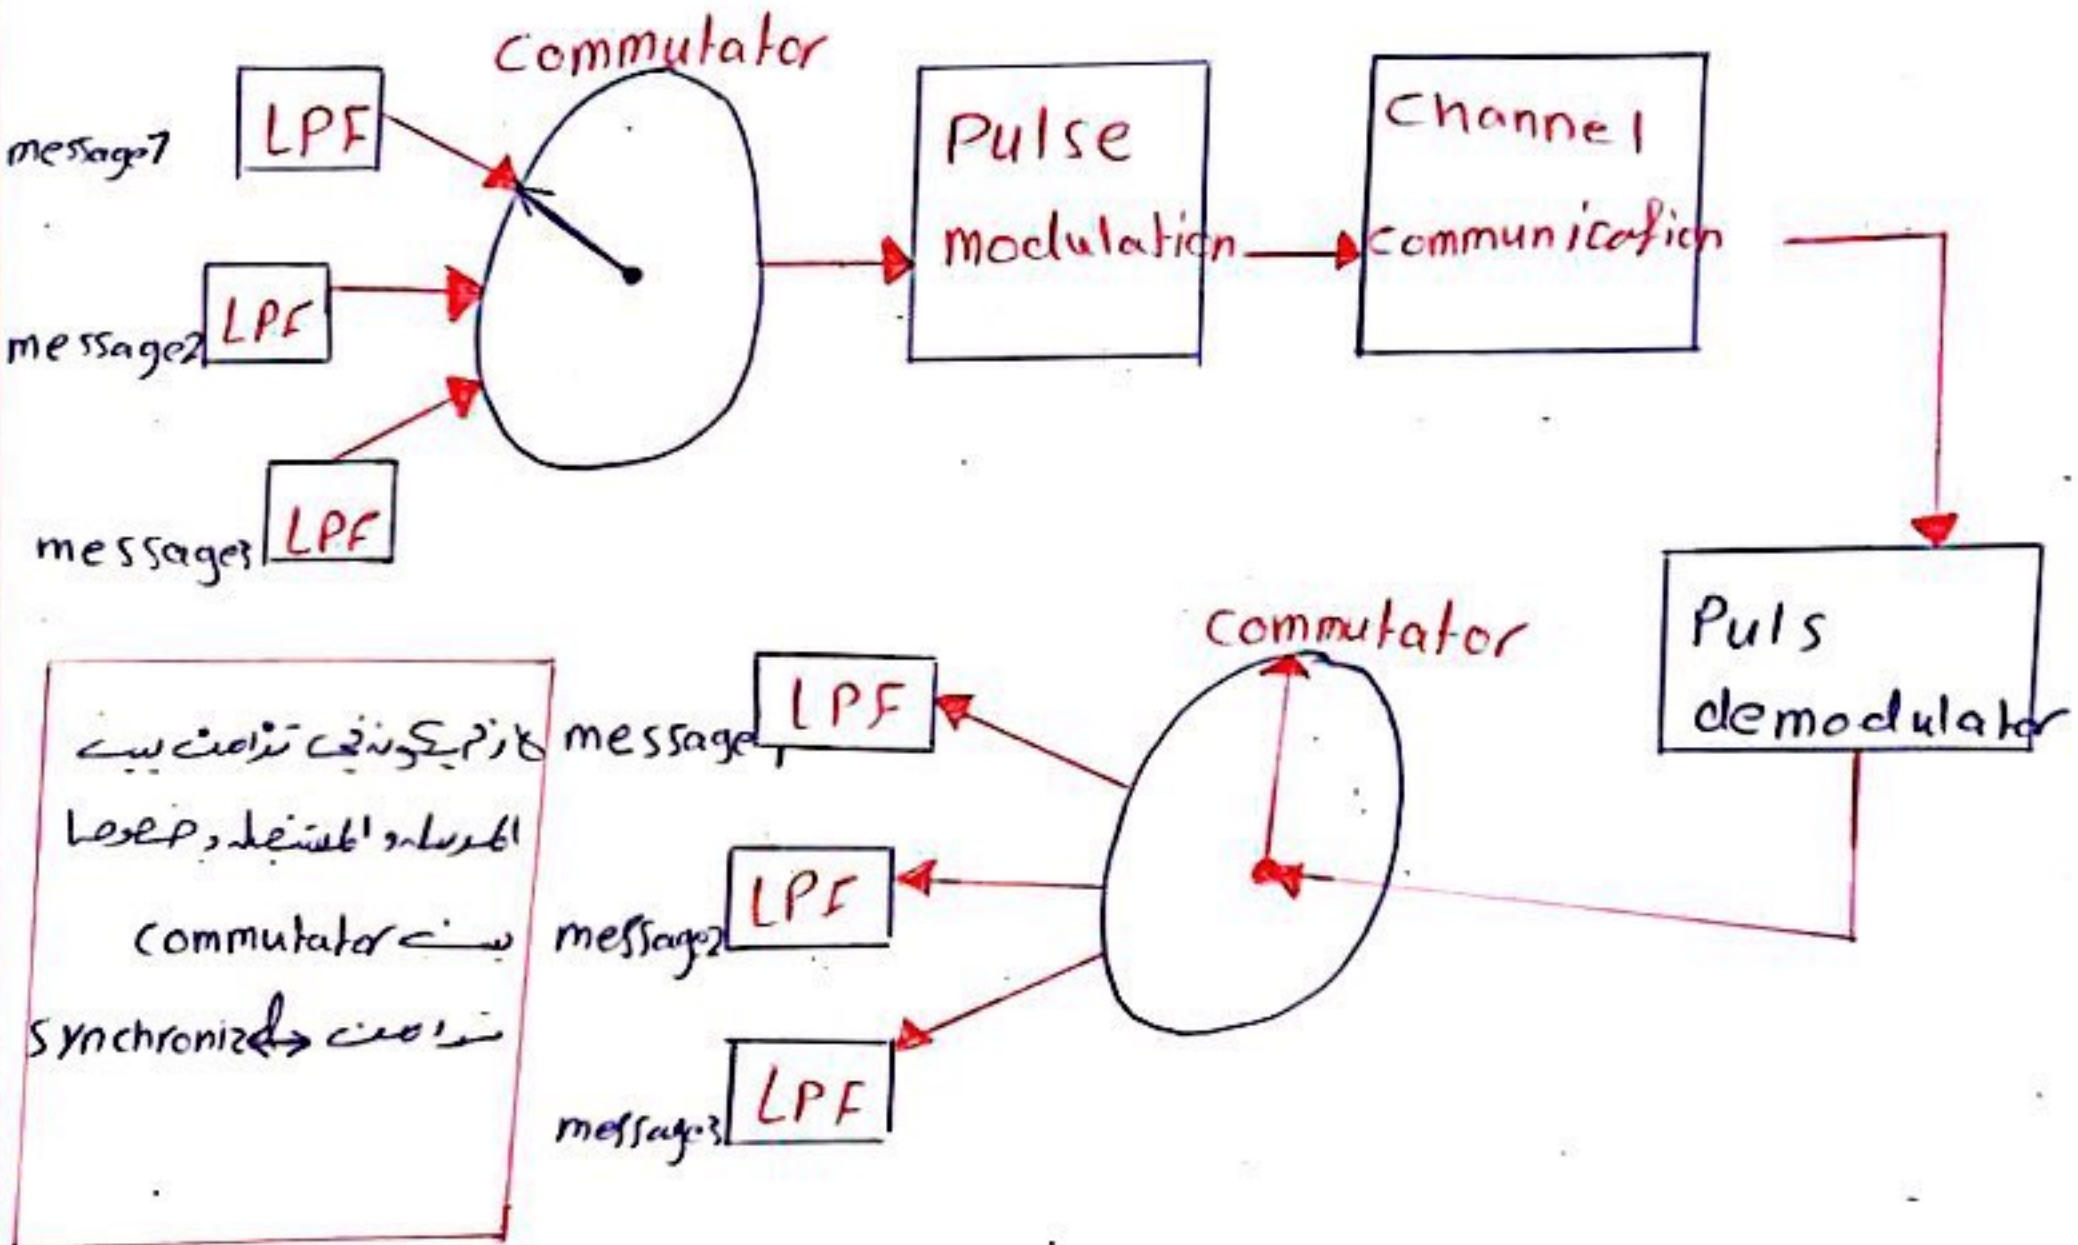 Commutator
message1
LPF
message2
LPF
message3
LPF
Pulse
modulation
Channel
communication
Puls
demodulator
commutator
message1
LPF
message2
LPF
message3
LPF
لازم يكون في تزامن بين
المرسل والمستقبل وخصوصا
بين commutator
تزامن ↔ synchronized